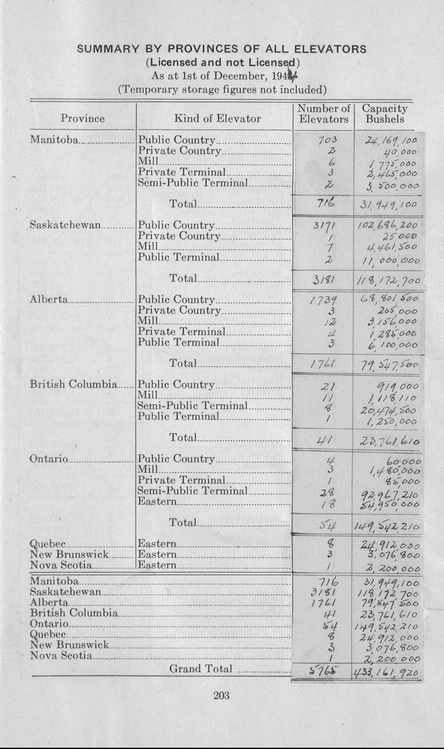 SUMMARY BY PROVINCES OF ALL ELEVATORS
(Licensed and not Licensed)
As at 1st of December, 1944
(Temporary storage figures not included)
Province Kind of Elevator Number of Elevators Capacity Bushels
Manitoba Public Country 703 24,169,100
Private Country 2 40,000
Mill 6 1,775,000
Private Terminal 3 2,465,000
Semi-Public Terminal 2 3,500,000
Total 716 31,949,100
Saskatchewan Public Country 3171 102,686,200
Private Country 1 25,000
Mill 7 4,461,500
Public Terminal 2 11,000,000
Total 3181 118,172,700
Alberta Public Country 1739 68,801,500
Private Country 3 205,000
Mill 12 3,156,000
Private Terminal 4 1,285,000
Public Terminal 3 6,100,000
Total 1761 79,547,500
British Columbia Public Country 21 919,000
Mill 11 1,118,110
Semi-Public Terminal 8 20,474,500
Public Terminal 1 1,250,000
Total 41 23,761,610
Ontario Public Country 4 60,000
Mill 3 1,480,000
Private Terminal 1 85,000
Semi-Public Terminal 28 92,967,210
Eastern 18 54,950,000
Total 54 149,542,210
Quebec Eastern 8 24,912,000
New Brunswick Eastern 3 3,076,800
Nova Scotia Eastern 1 2,200,000
Manitoba 716 31,949,100
Saskatchewan 3181 118,172,700
Alberta 1761 79,547,500
British Columbia 41 23,761,610
Ontario 54 149,542,210
Quebec 8 24,912,000
New Brunswick 3 3,076,800
Nova Scotia 1 2,200,000
Grand Total 5765 433,161,920
203